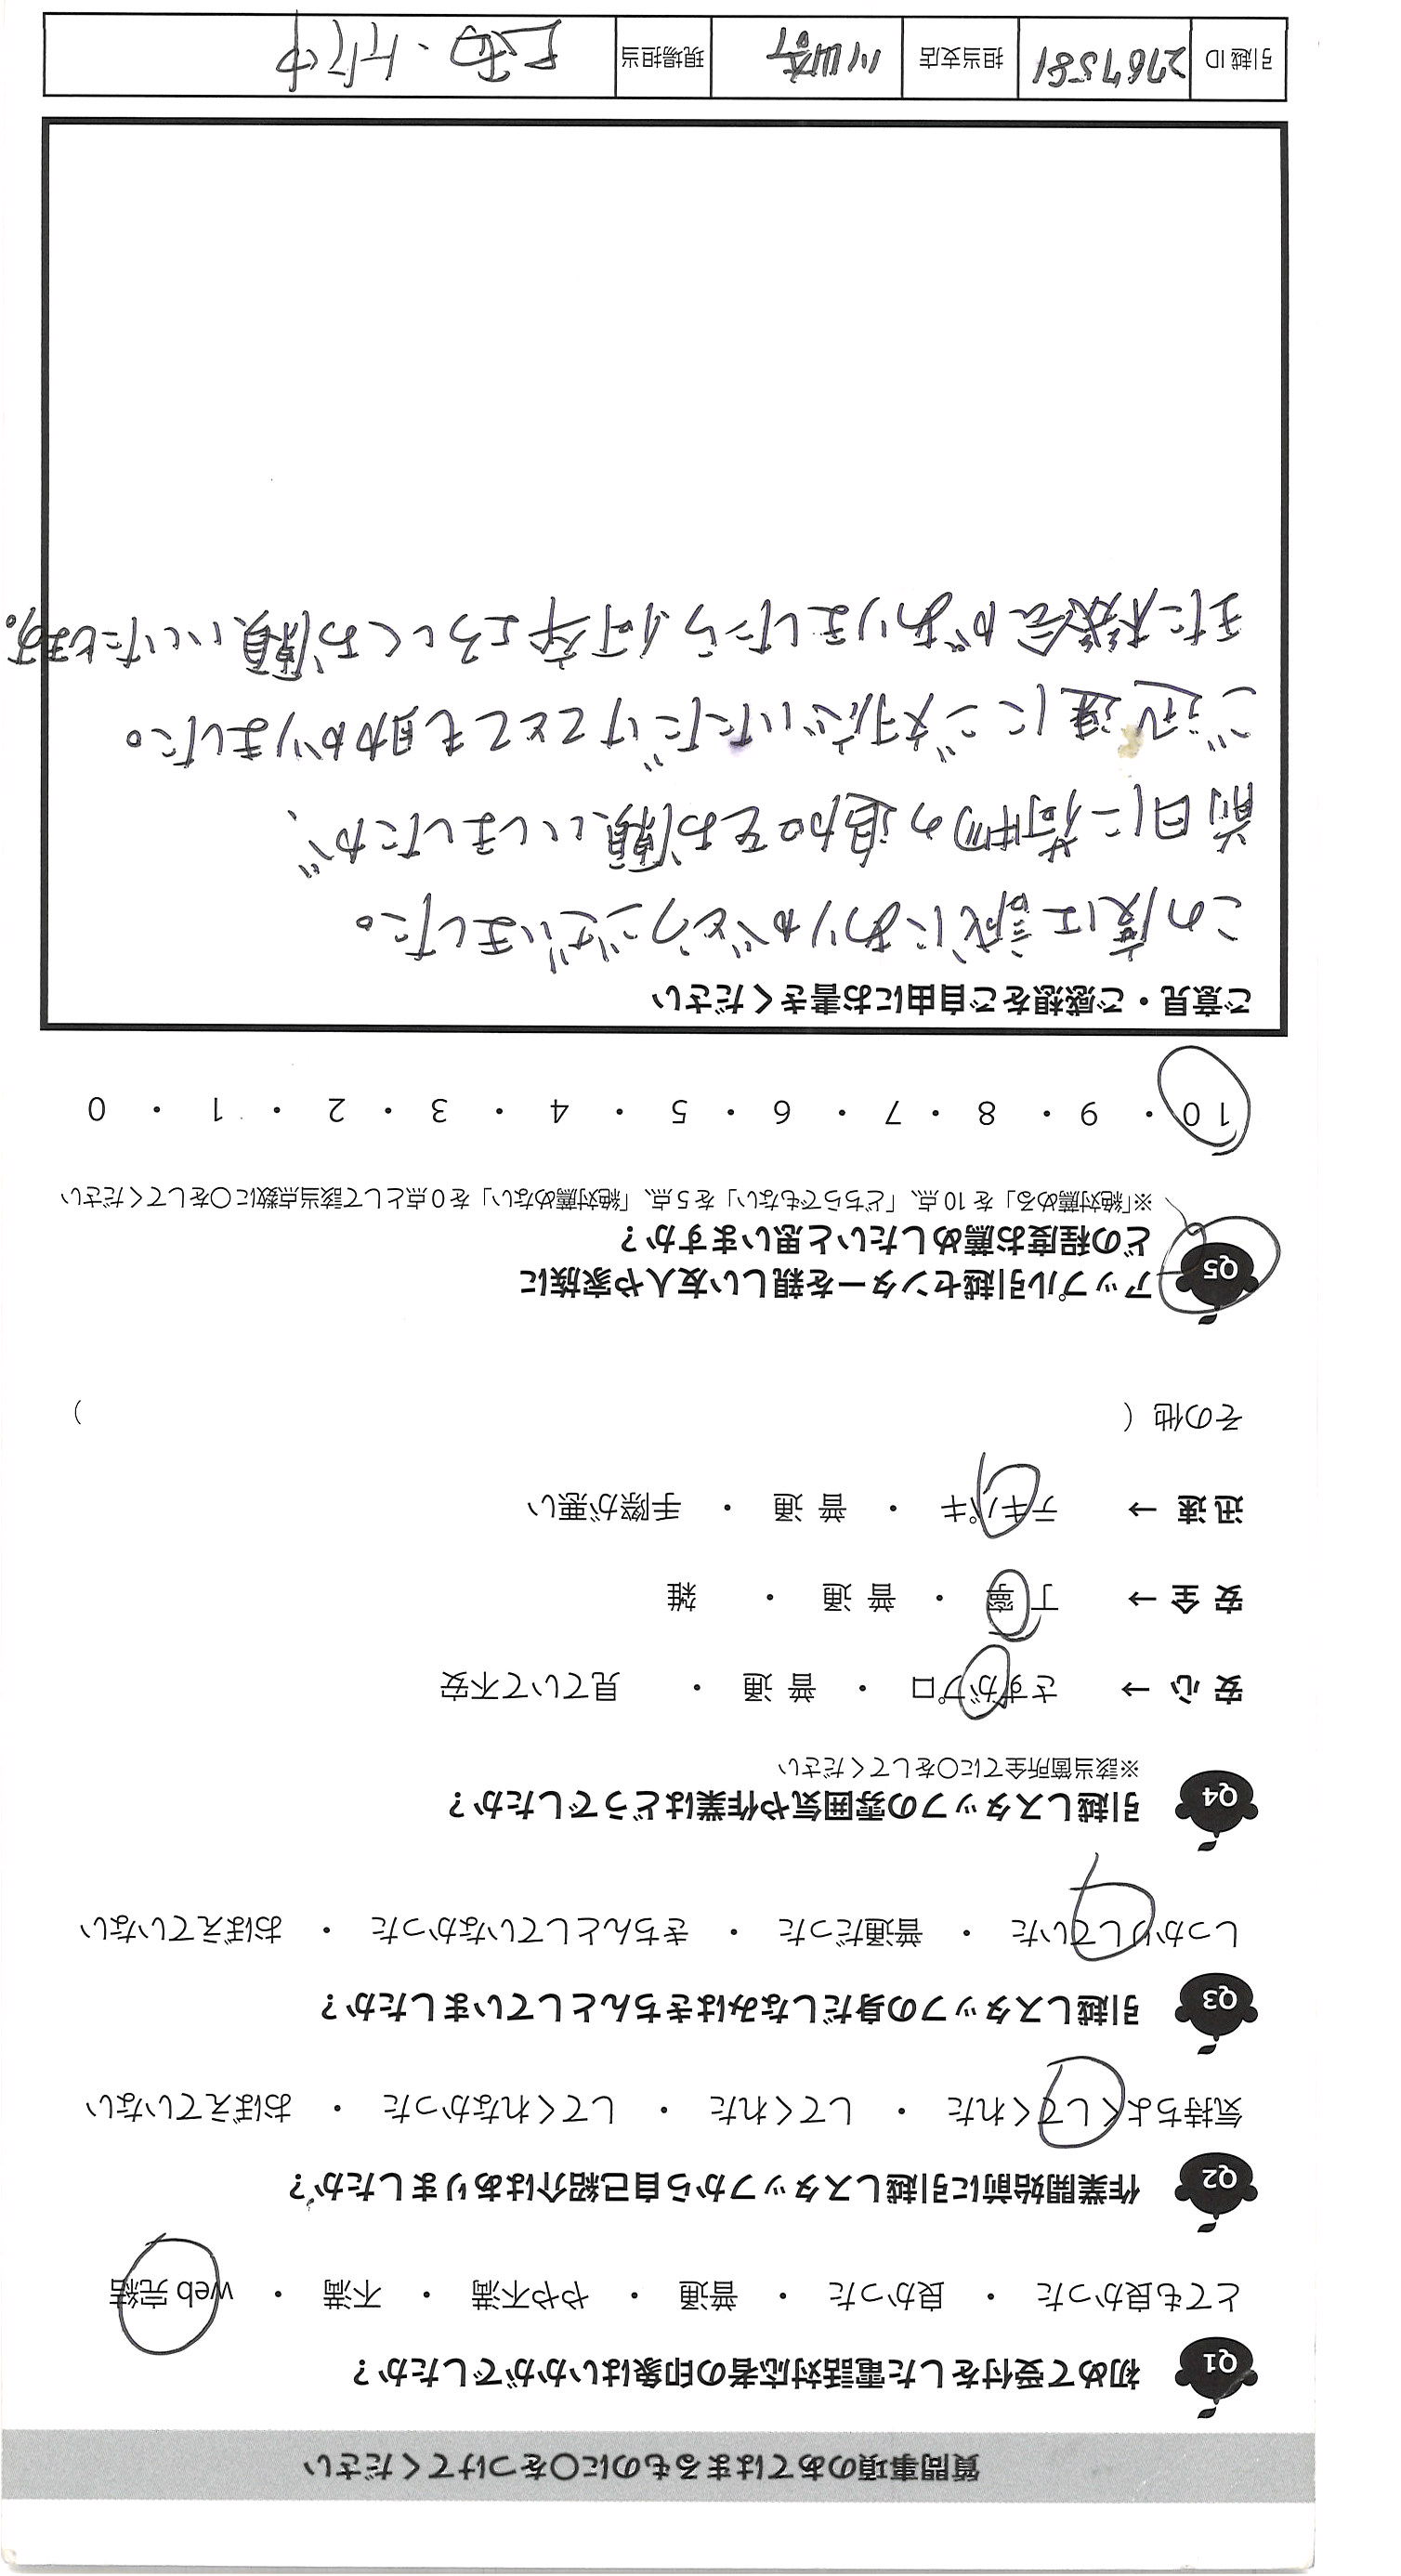 質問事項のあてはまるものに〇をつけてください
Q1 初めて受付をした電話対応者の印象はいかがでしたか？
とても良かった ・ 良かった ・ 普通 ・ やや不満 ・ 不満 ・ web 完結
Q2 作業開始前に引越しスタッフから自己紹介はありましたか？
気持ちよくしてくれた ・ してくれた ・ してくれなかった ・ おぼえていない
Q3 引越しスタッフの身だしなみはきちんとしていましたか？
しっかりしていた ・ 普通だった ・ きちんとしていなかった ・ おぼえていない
Q4 引越しスタッフの雰囲気や作業はどうでしたか？
※該当箇所全てに〇をしてください
安 心 → さすがプロ ・ 普 通 ・ 見ていて不安
安 全 → 丁 寧 ・ 普 通 ・ 雑
迅 速 → テキパキ ・ 普 通 ・ 手際が悪い
その他（ ）
Q5 アップル引越センターを親しい友人や家族に
どの程度お薦めしたいと思いますか？
※「絶対薦める」を 10 点、「どちらでもない」を 5 点、「絶対薦めない」を 0 点として該当点数に〇をしてください
10 ・ 9 ・ 8 ・ 7 ・ 6 ・ 5 ・ 4 ・ 3 ・ 2 ・ 1 ・ 0
ご意見・ご感想をご自由にお書きください
この度は誠にありがとうございました。
前日に荷物の追加をお願いしましたが、
ご迅速にご対応いただけてとても助かりました。
また機会がありましたら何卒よろしくお願いいたします。
引越 ID 2767581 担当支店 川崎 現場担当